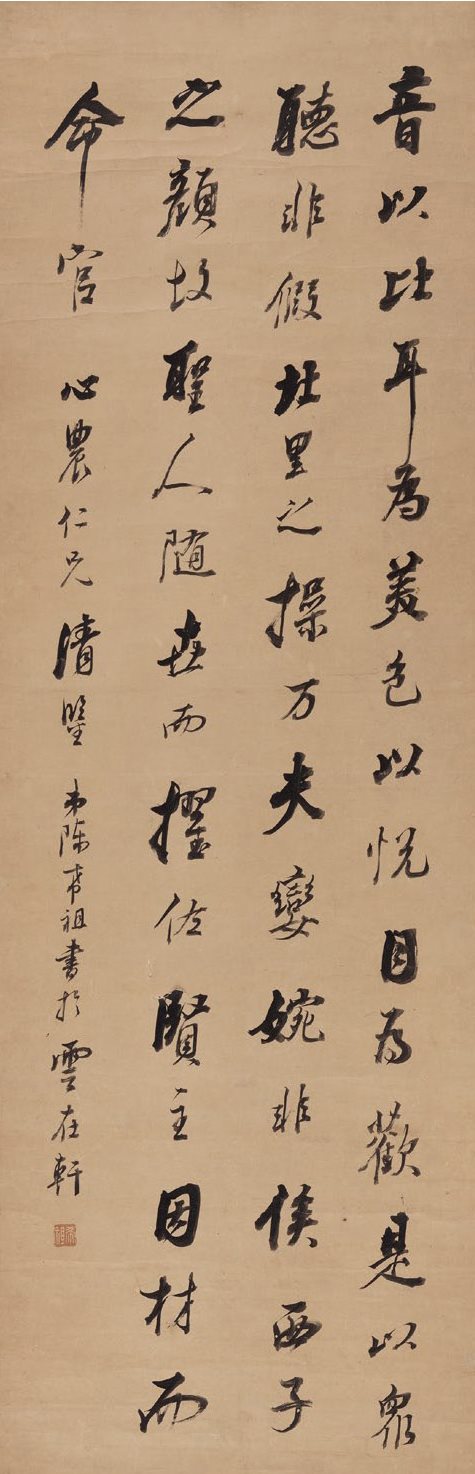 音以比耳為美色以悅目為歡是以眾
聽非假北里之操万夫孌婉非俟西子
之顏故聖人随世而擢佐賢主因材而
命官 心農仁兄清鑒 弟陳希祖書於雲在軒